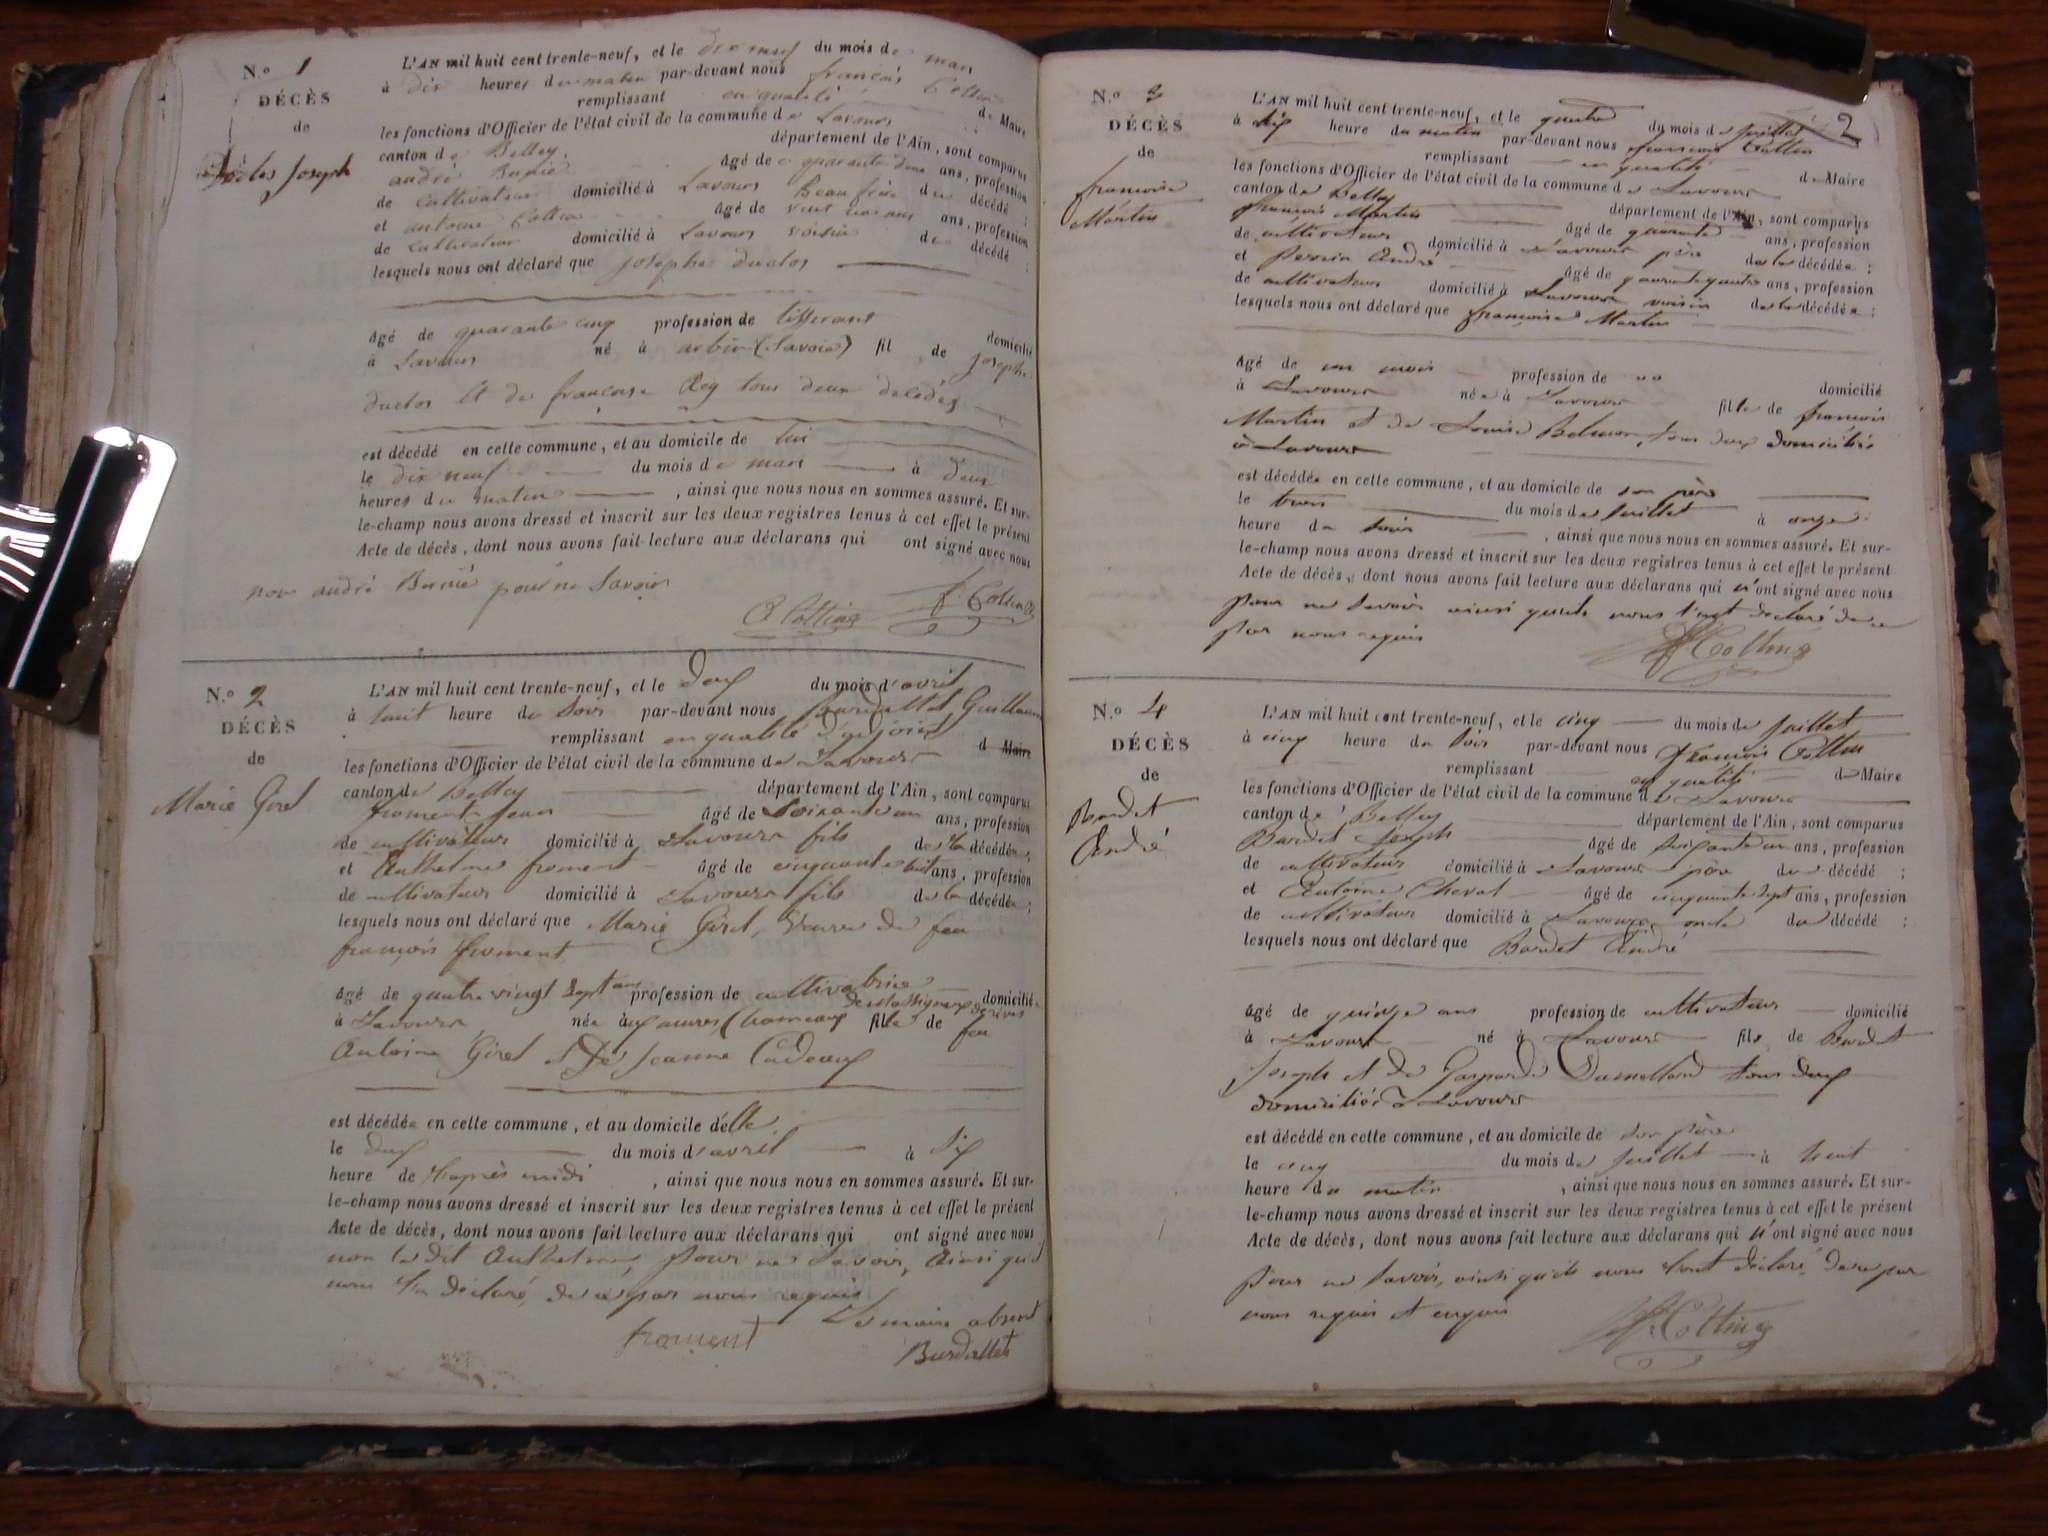 N.o 1
DÉCÈS
de
Duclos Joseph
L'AN mil huit cent trente-neuf, et le dix neuf du mois de mars
à dix heures du matin par-devant nous françois Cottin
remplissant en qualité de Maire
les fonctions d'Officier de l'état civil de la commune de Lavours
canton de Belley département de l'Ain, sont comparus
andré âgé de quarante deux ans, profession
de Cultivateur domicilié à Lavours Beau frère du décédé ;
et antoine Cottin âgé de vint ans, profession
de Cultivateur domicilié à Lavours voisin du décédé ;
lesquels nous ont déclaré que Josephe duclos
Agé de quarante cinq profession de tisserant domicilié
à Lavours né à arbin (Savoie) fil de josephe
duclos Et de francoise Rey tous deux décédés
est décédé en cette commune, et au domicile de lui
le dix neuf du mois de mars à deux
heures du matin, ainsi que nous nous en sommes assuré. Et sur-
le-champ nous avons dressé et inscrit sur les deux registres tenus à cet effet le présent
Acte de décès, dont nous avons fait lecture aux déclarans qui ont signé avec nous
non andré pour ne Savoir
A Cottin f. Cottin
N.o 2
DÉCÈS
de
Marie Giret
L'AN mil huit cent trente-neuf, et le deux du mois d'avril
à huit heure du Soir par-devant nous Burdallet Guillaume
remplissant en qualité d'adjoint d Maire
les fonctions d'Officier de l'état civil de la commune de Lavours
canton de Belley département de l'Ain, sont comparus
froment Jean âgé de Soixante un ans, profession
de cultivateur domicilié à Lavours fils de la décédée ;
et Anthelme froment âgé de cinquante huit ans, profession
de cultivateur domicilié à Lavours fils de la décédée ;
lesquels nous ont déclaré que Marie Giret, Veuve de feu
françois froment
Agé de quatre vingt Sept ans profession de cultivatrice domicilié
à Lavours née à fille de feu
Antoine Giret et De Jeanne Cadeaux
est décédée en cette commune, et au domicile d'elle
le deux du mois d'avril à Six
heure de l'après midi, ainsi que nous nous en sommes assuré. Et sur-
le-champ nous avons dressé et inscrit sur les deux registres tenus à cet effet le présent
Acte de décès, dont nous avons fait lecture aux déclarans qui ont signé avec nous
non le dit Anthelme pour ne Savoir, Ainsi qu'il
nous l'a déclaré, de ce par nous requis
Le maire absent
froment Burdallet
2
N.o 3
DÉCÈS
de
françoise
Martin
L'AN mil huit cent trente-neuf, et le quatre du mois de Juillet
à Six heure du matin par-devant nous françois Cottin
remplissant en qualité de Maire
les fonctions d'Officier de l'état civil de la commune de Lavours
canton de Belley département de l'Ain, sont comparus
françois Martin âgé de quarante ans, profession
de cultivateur domicilié à Lavours père de la décédée ;
et Perrin André âgé de quarante quatre ans, profession
de cultivateur domicilié à Lavours voisin de la décédée ;
lesquels nous ont déclaré que françoise Martin
Agé de un mois profession de domicilié
à Lavours née à Lavours fille de françois
Martin et de Louise, tous deux domiciliés
à Lavours
est décédée en cette commune, et au domicile de son père
le trois du mois de Juillet à onze
heure du Soir, ainsi que nous nous en sommes assuré. Et sur-
le-champ nous avons dressé et inscrit sur les deux registres tenus à cet effet le présent
Acte de décès, dont nous avons fait lecture aux déclarans qui n'ont signé avec nous
Pour ne Savoir ainsi qu'ils nous l'ont déclaré de ce
par nous requis
f Cottin
N.o 4
DÉCÈS
de
Bordet
André
L'AN mil huit cent trente-neuf, et le cinq du mois de Juillet
à cinq heure du Soir par-devant nous françois Cottin
remplissant en qualité de Maire
les fonctions d'Officier de l'état civil de la commune de Lavours
canton de Belley département de l'Ain, sont comparus
Bordet Joseph âgé de Soixante un ans, profession
de cultivateur domicilié à Lavours père du décédé ;
et Antoine Chevat âgé de cinquante Sept ans, profession
de cultivateur domicilié à Lavours oncle du décédé ;
lesquels nous ont déclaré que Bordet André
Agé de quinze ans profession de cultivateur domicilié
à Lavours né à Lavours fils de Bordet
Joseph et de Gasparde tous deux
domiciliés à Lavours
est décédé en cette commune, et au domicile de son père
le cinq du mois de Juillet à huit
heure du matin, ainsi que nous nous en sommes assuré. Et sur-
le-champ nous avons dressé et inscrit sur les deux registres tenus à cet effet le présent
Acte de décès, dont nous avons fait lecture aux déclarans qui n'ont signé avec nous
Pour ne Savoir, ainsi qu'ils nous l'ont déclaré, de ce par
nous requis et enquis
f Cottin